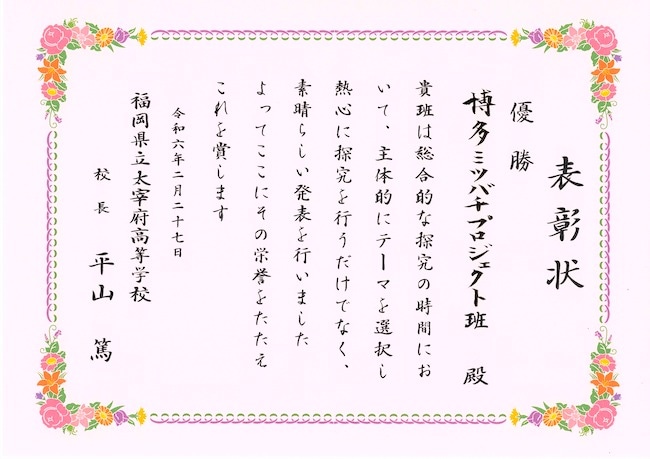 表彰状
優勝
博多ミツバチプロジェクト班 殿
貴班は総合的な探究の時間にお
いて、主体的にテーマを選択し
熱心に探究を行うだけでなく、
素晴らしい発表を行いました
よってここにその栄誉をたたえ
これを賞します
令和六年二月二十七日
福岡県立太宰府高等学校
校長 平山 篤